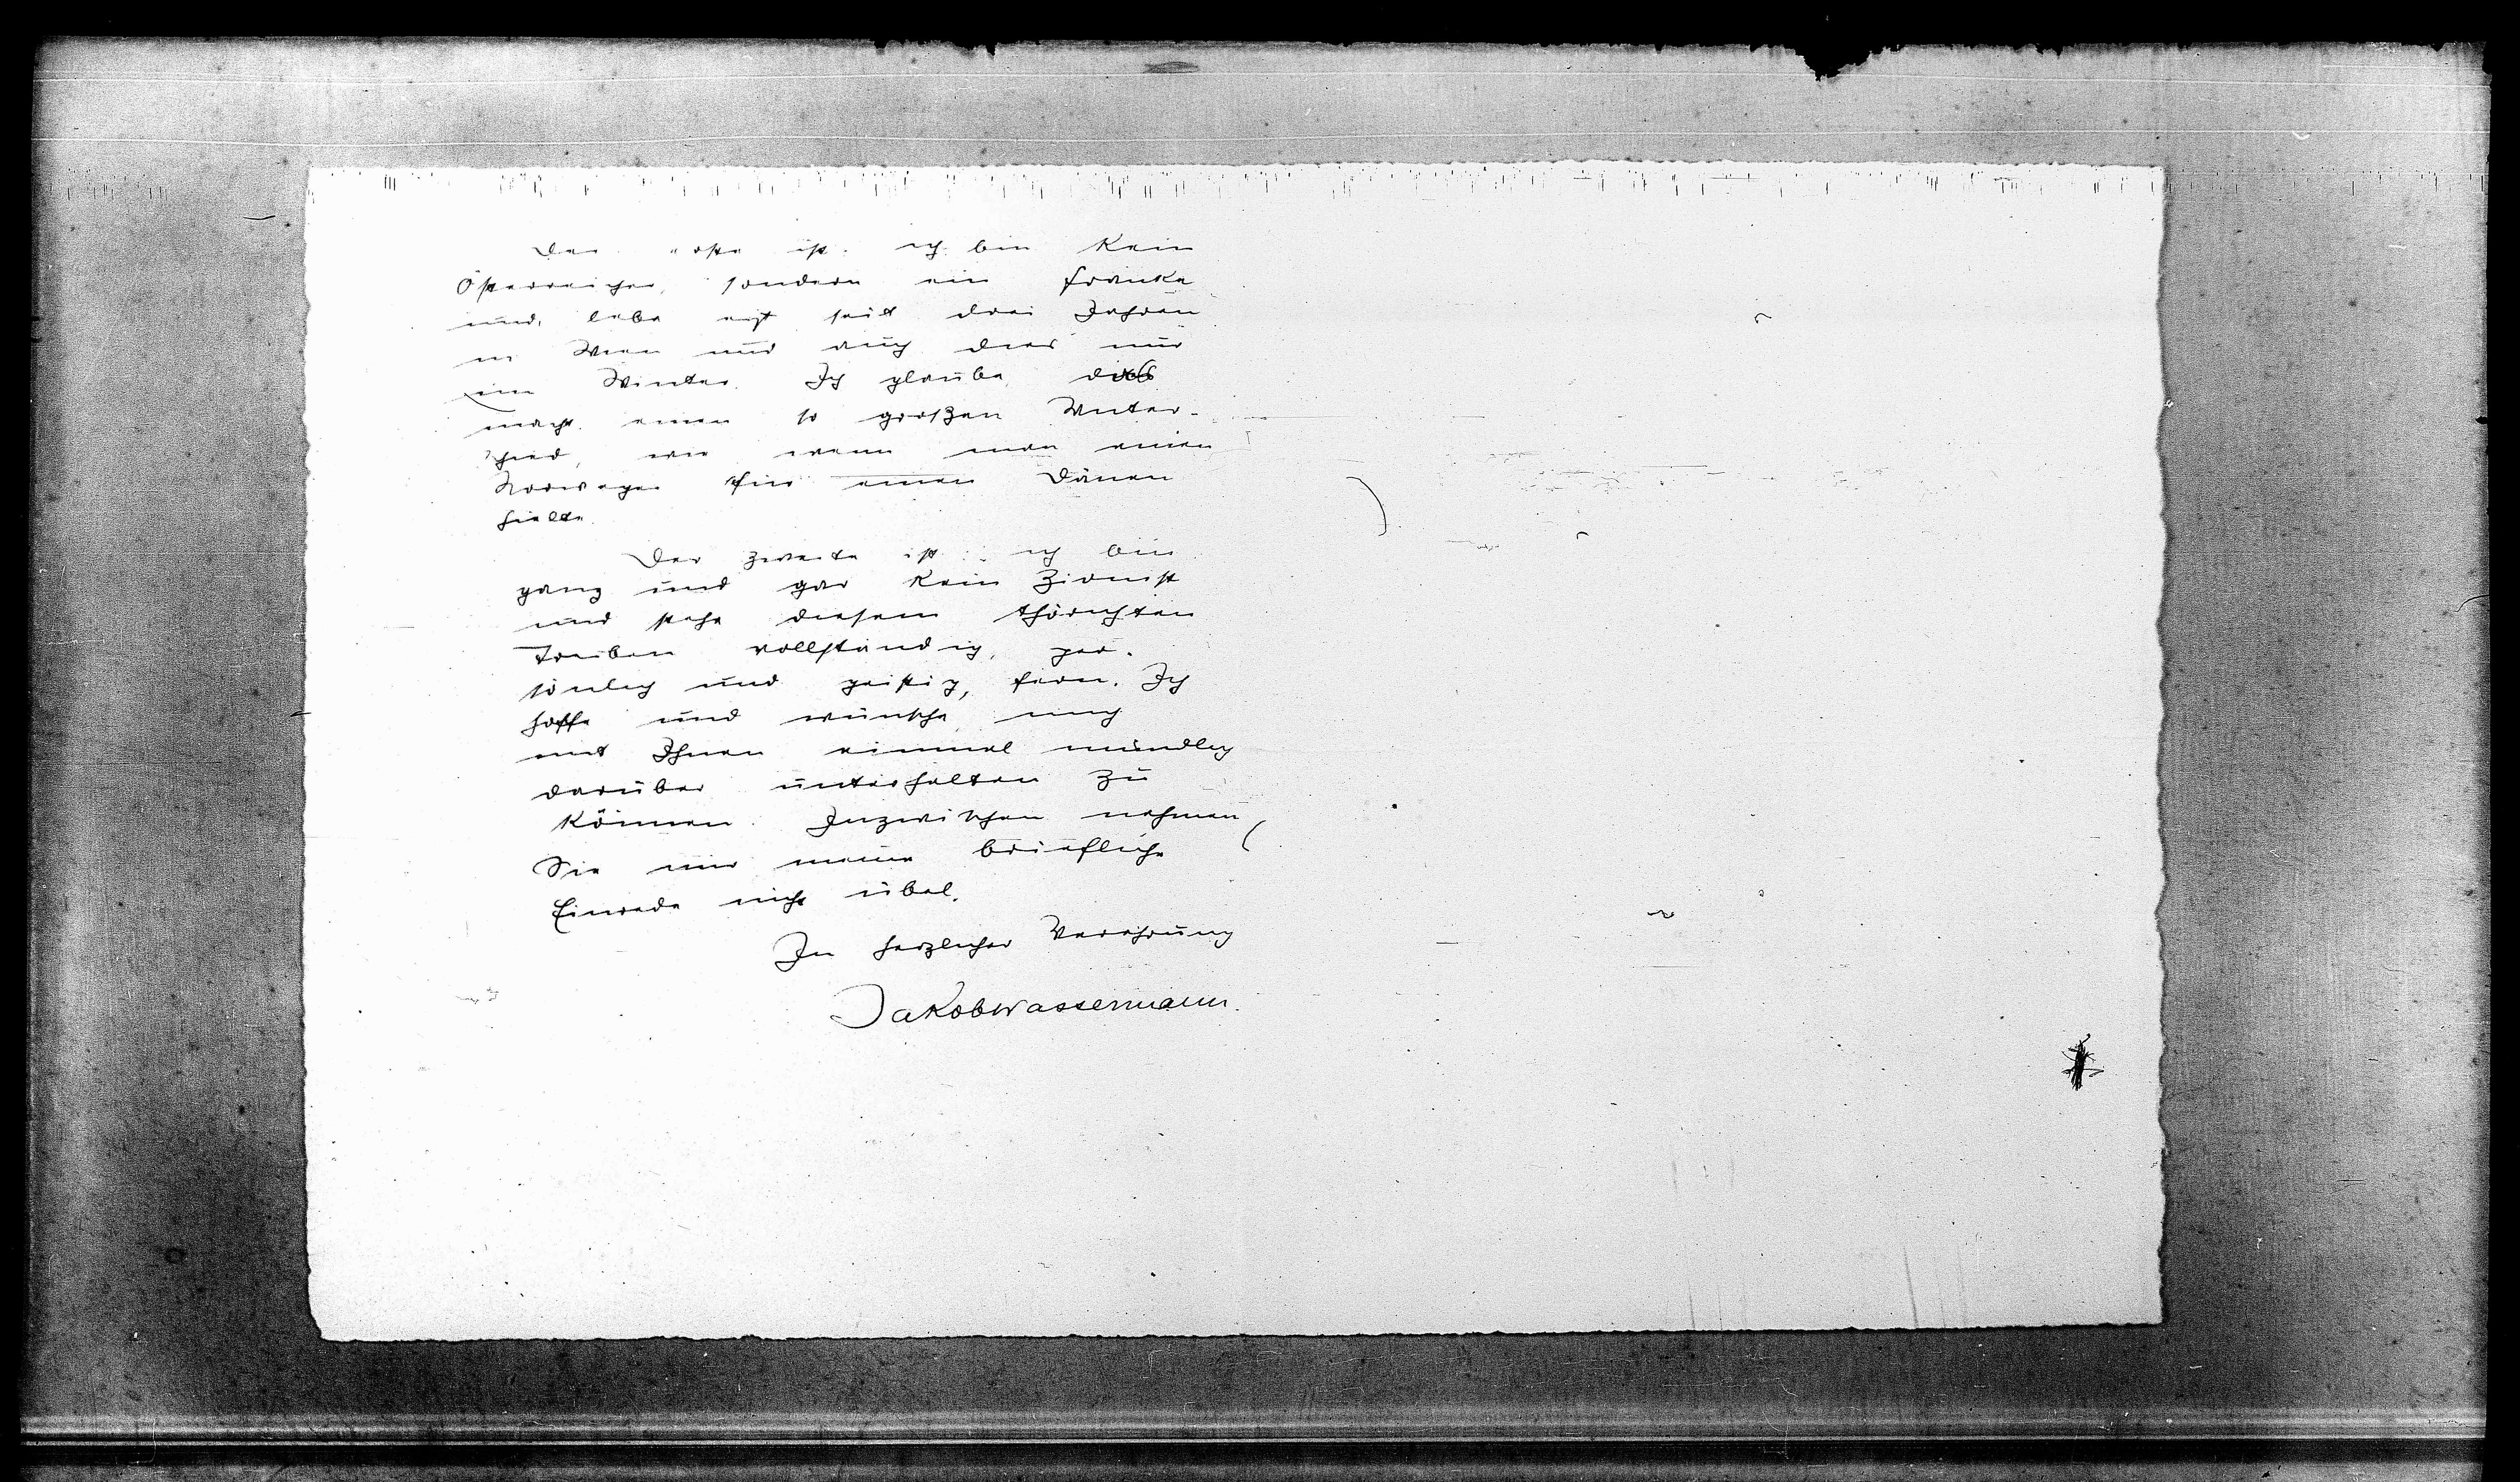 Der erste ist: ich bin kein
Österreicher, sondern ein Franke
und lebe erst seit drei Jahren
in Wien und auch dies nur
im Winter. Ich glaube, dies
macht einen so großen Unter-
schied, wie wenn man einen
Norweger für einen Dänen
hielte.
Der zweite ist: ich bin
ganz und gar kein Zionist
und stehe diesem thörichten
Treiben vollständig, per-
sönlich und geistig, fern. Ich
hoffe und wünsche, mich
mit Ihnen einmal mündlich
darüber unterhalten zu
können. Inzwischen nehmen
Sie mir meine briefliche
Einrede nicht übel.
In herzlicher Verehrung
Jakob Wassermann.